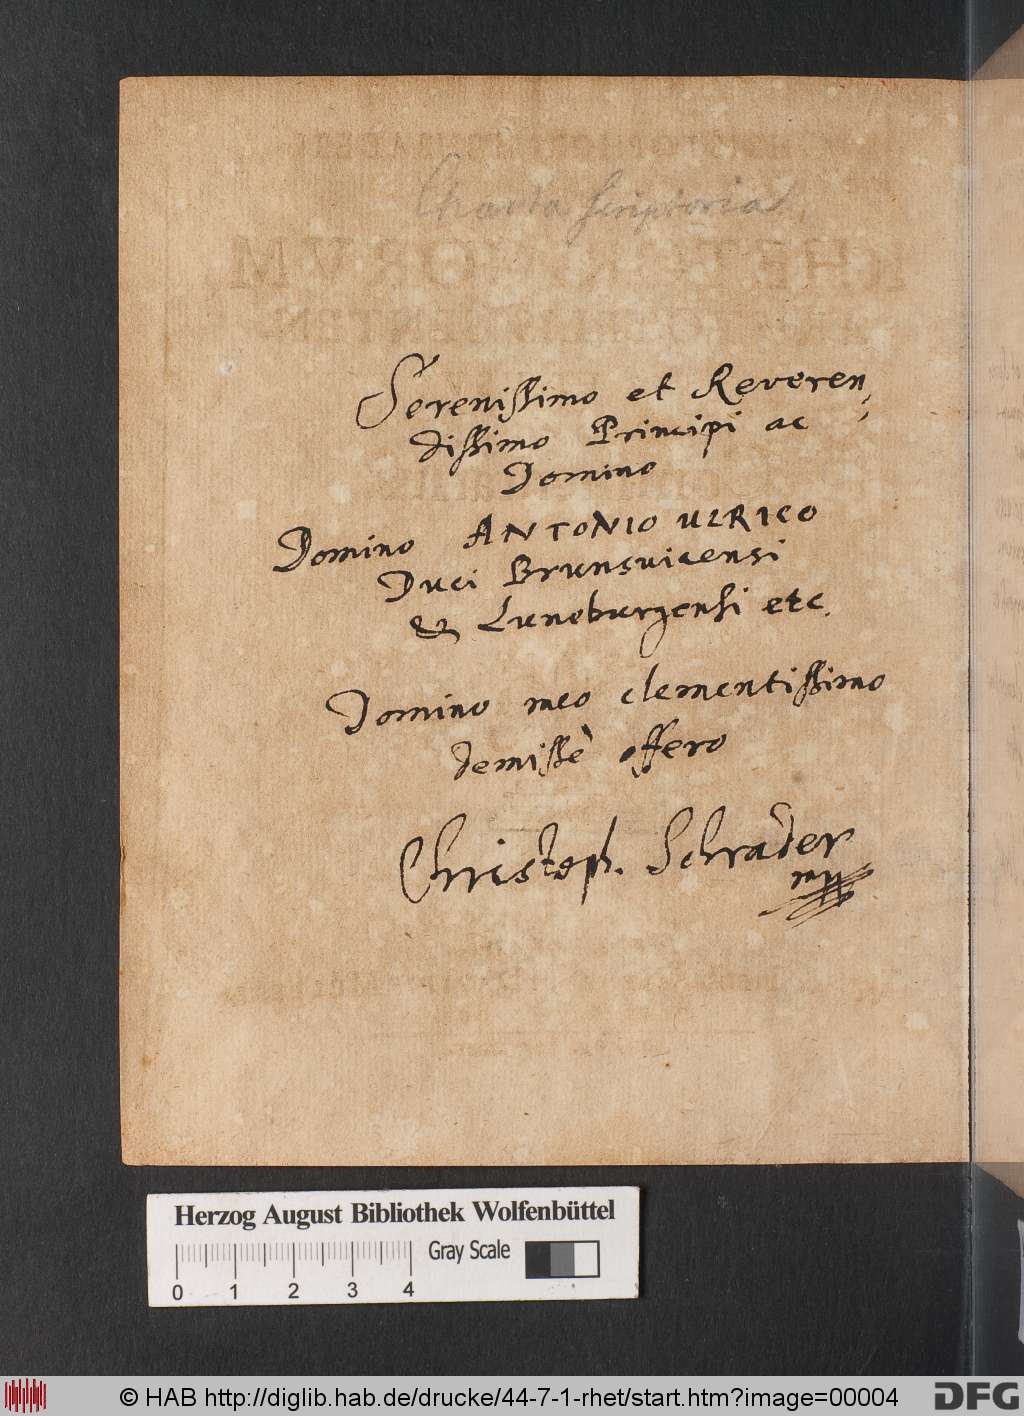 Charta scriptoria
Serenissimo et Reveren,,
dissimo Principi ac
Domino
Domino ANTONIO ULRICO
Duci Brunsvicensi
& Luneburgensi etc.
Domino meo clementissimo
demissè offero
Christoph. Schrader
mp
Herzog August Bibliothek Wolfenbüttel
Gray Scale
0 1 2 3 4
© HAB http://diglib.hab.de/drucke/44-7-1-rhet/start.htm?image=00004
DFG